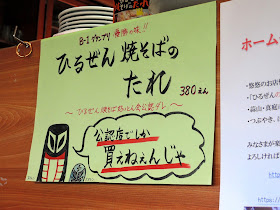 B-1グランプリ 優勝の味!!
ひるぜん焼そばの
たれ
380えん
～ひるぜん焼そば好いとん会公認ダレ～
公認店でしか
買えねぇんじゃ
ホーム
・悠悠のお店
・「ひるぜん
・蒜山・真庭
・つぶやき、
みなさまが楽
よろしければ
http